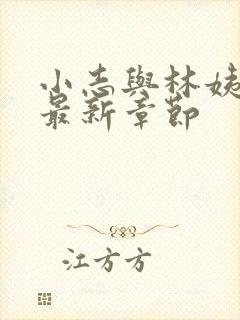 小志與林姨
最新章節
江方方